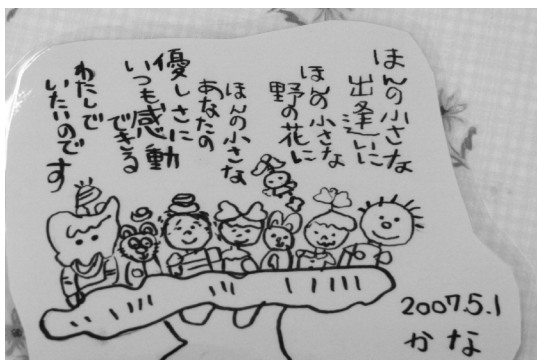 ほんの小さな
出逢いに
ほんの小さな
野の花に
ほんの小さな
あなたの
優しさに
いつも感動
できる
わたしで
いたいのです
2007.5.1
かな